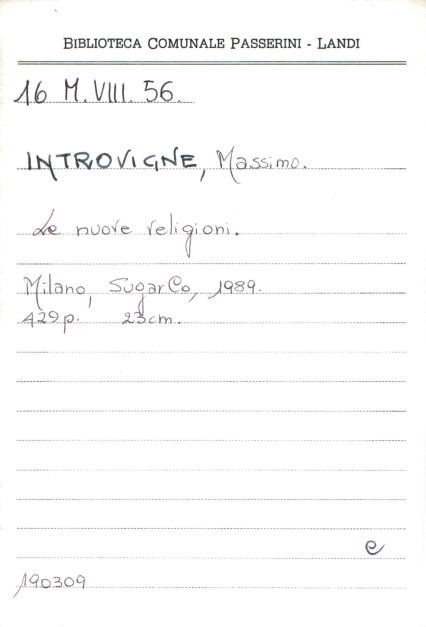 BIBLIOTECA COMUNALE PASSERINI - LANDI
16 M. VIII. 56.
INTROVIGNE, Massimo.
Le nuove religioni.
Milano, SugarCo, 1989.
429p. 23cm.
e
190309